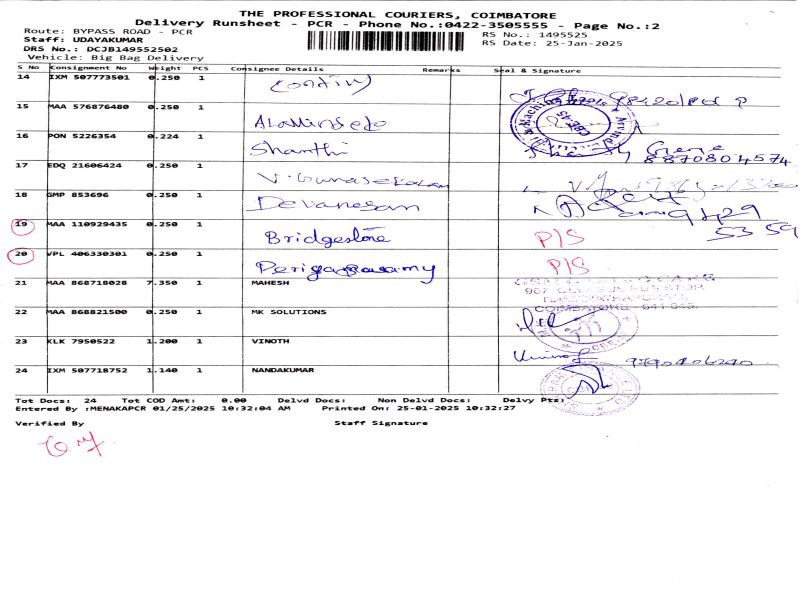 THE PROFESSIONAL COURIERS, COIMBATORE
Delivery Runsheet - PCR - Phone No.:0422-3505555 - Page No.:2
Route: BYPASS ROAD - PCR
RS No.: 1495525
Staff: UDAYAKUMAR
RS Date: 25-Jan-2025
DRS No.: DCJB149552502
Vehicle: Big Bag Delivery
S No Consignment No Weight PCS Consignee Details Remarks Seal & Signature
14 IXM 507773501 0.250 1
15 MAA 576876480 0.250 1
16 PON 5226354 0.224 1 Shanthi 8870804574
17 EDQ 21606424 0.250 1 V. Gunasekaran
18 GMP 853696 0.250 1 Devanesan 9429
53 59
19 MAA 110929435 0.250 1 Bridgestone P/S
20 VPL 406330301 0.250 1 P/S
21 MAA 868718028 7.350 1 MAHESH
22 MAA 868821500 0.250 1 MK SOLUTIONS
23 KLK 7950522 1.200 1 VINOTH
24 IXM 507718752 1.140 1 NANDAKUMAR
Tot Docs: 24 Tot COD Amt: 0.00 Delvd Docs: Non Delvd Docs: Delvy Pts:
Entered By :MENAKAPCR 01/25/2025 10:32:04 AM Printed On: 25-01-2025 10:32:27
Verified By Staff Signature